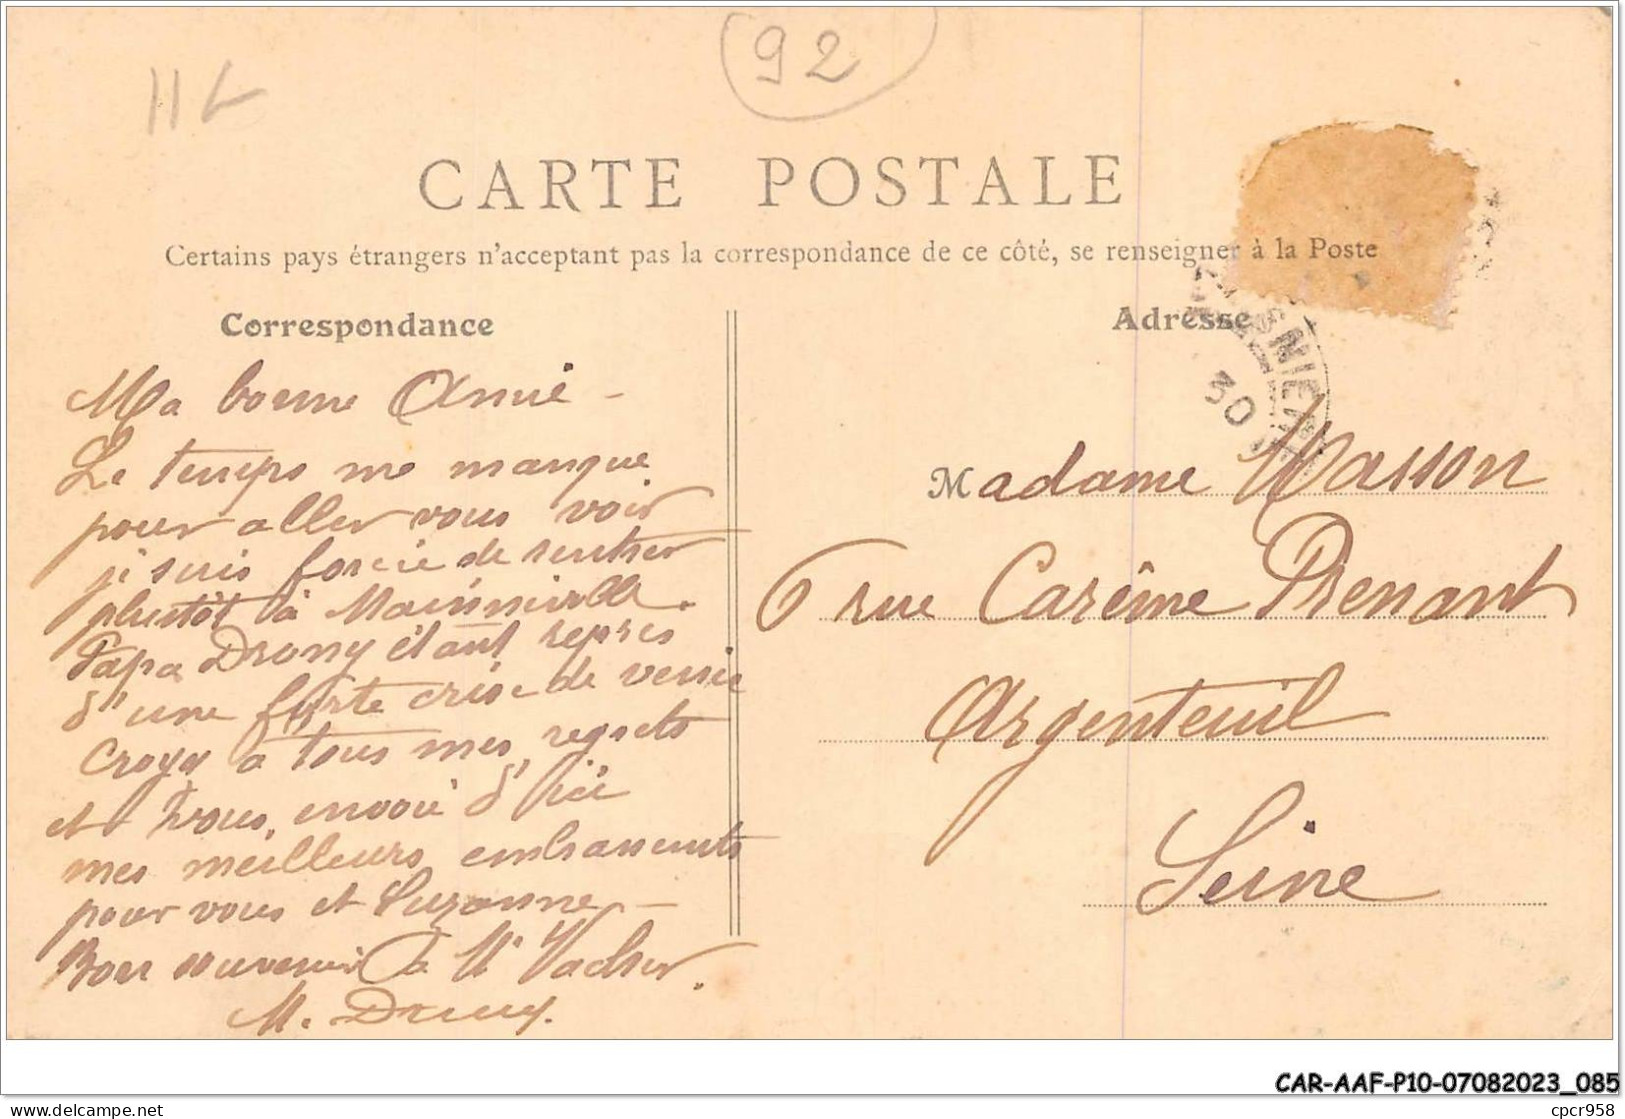 92
CARTE POSTALE
Certains pays étrangers n'acceptant pas la correspondance de ce côté, se renseigner à la Poste
Correspondance
Adresse
30
Ma bonne Annie -
Le temps me manque
pour aller vous voir
je suis forcée de rentrer
plutôt à
Papa Drony étant repris
d'une forte crise de vessie
Croyez à tous mes regrets
et vous envoie d'ici
mes meilleurs embrassements
pour vous et Suzanne -
Bon souvenir à Mr Vacher.
M. Drony.
Madame Masson
6 rue Carême Prenant
Argenteuil
Seine
CAR-AAF-P10-07082023_085
delcampe.net
cpcr958